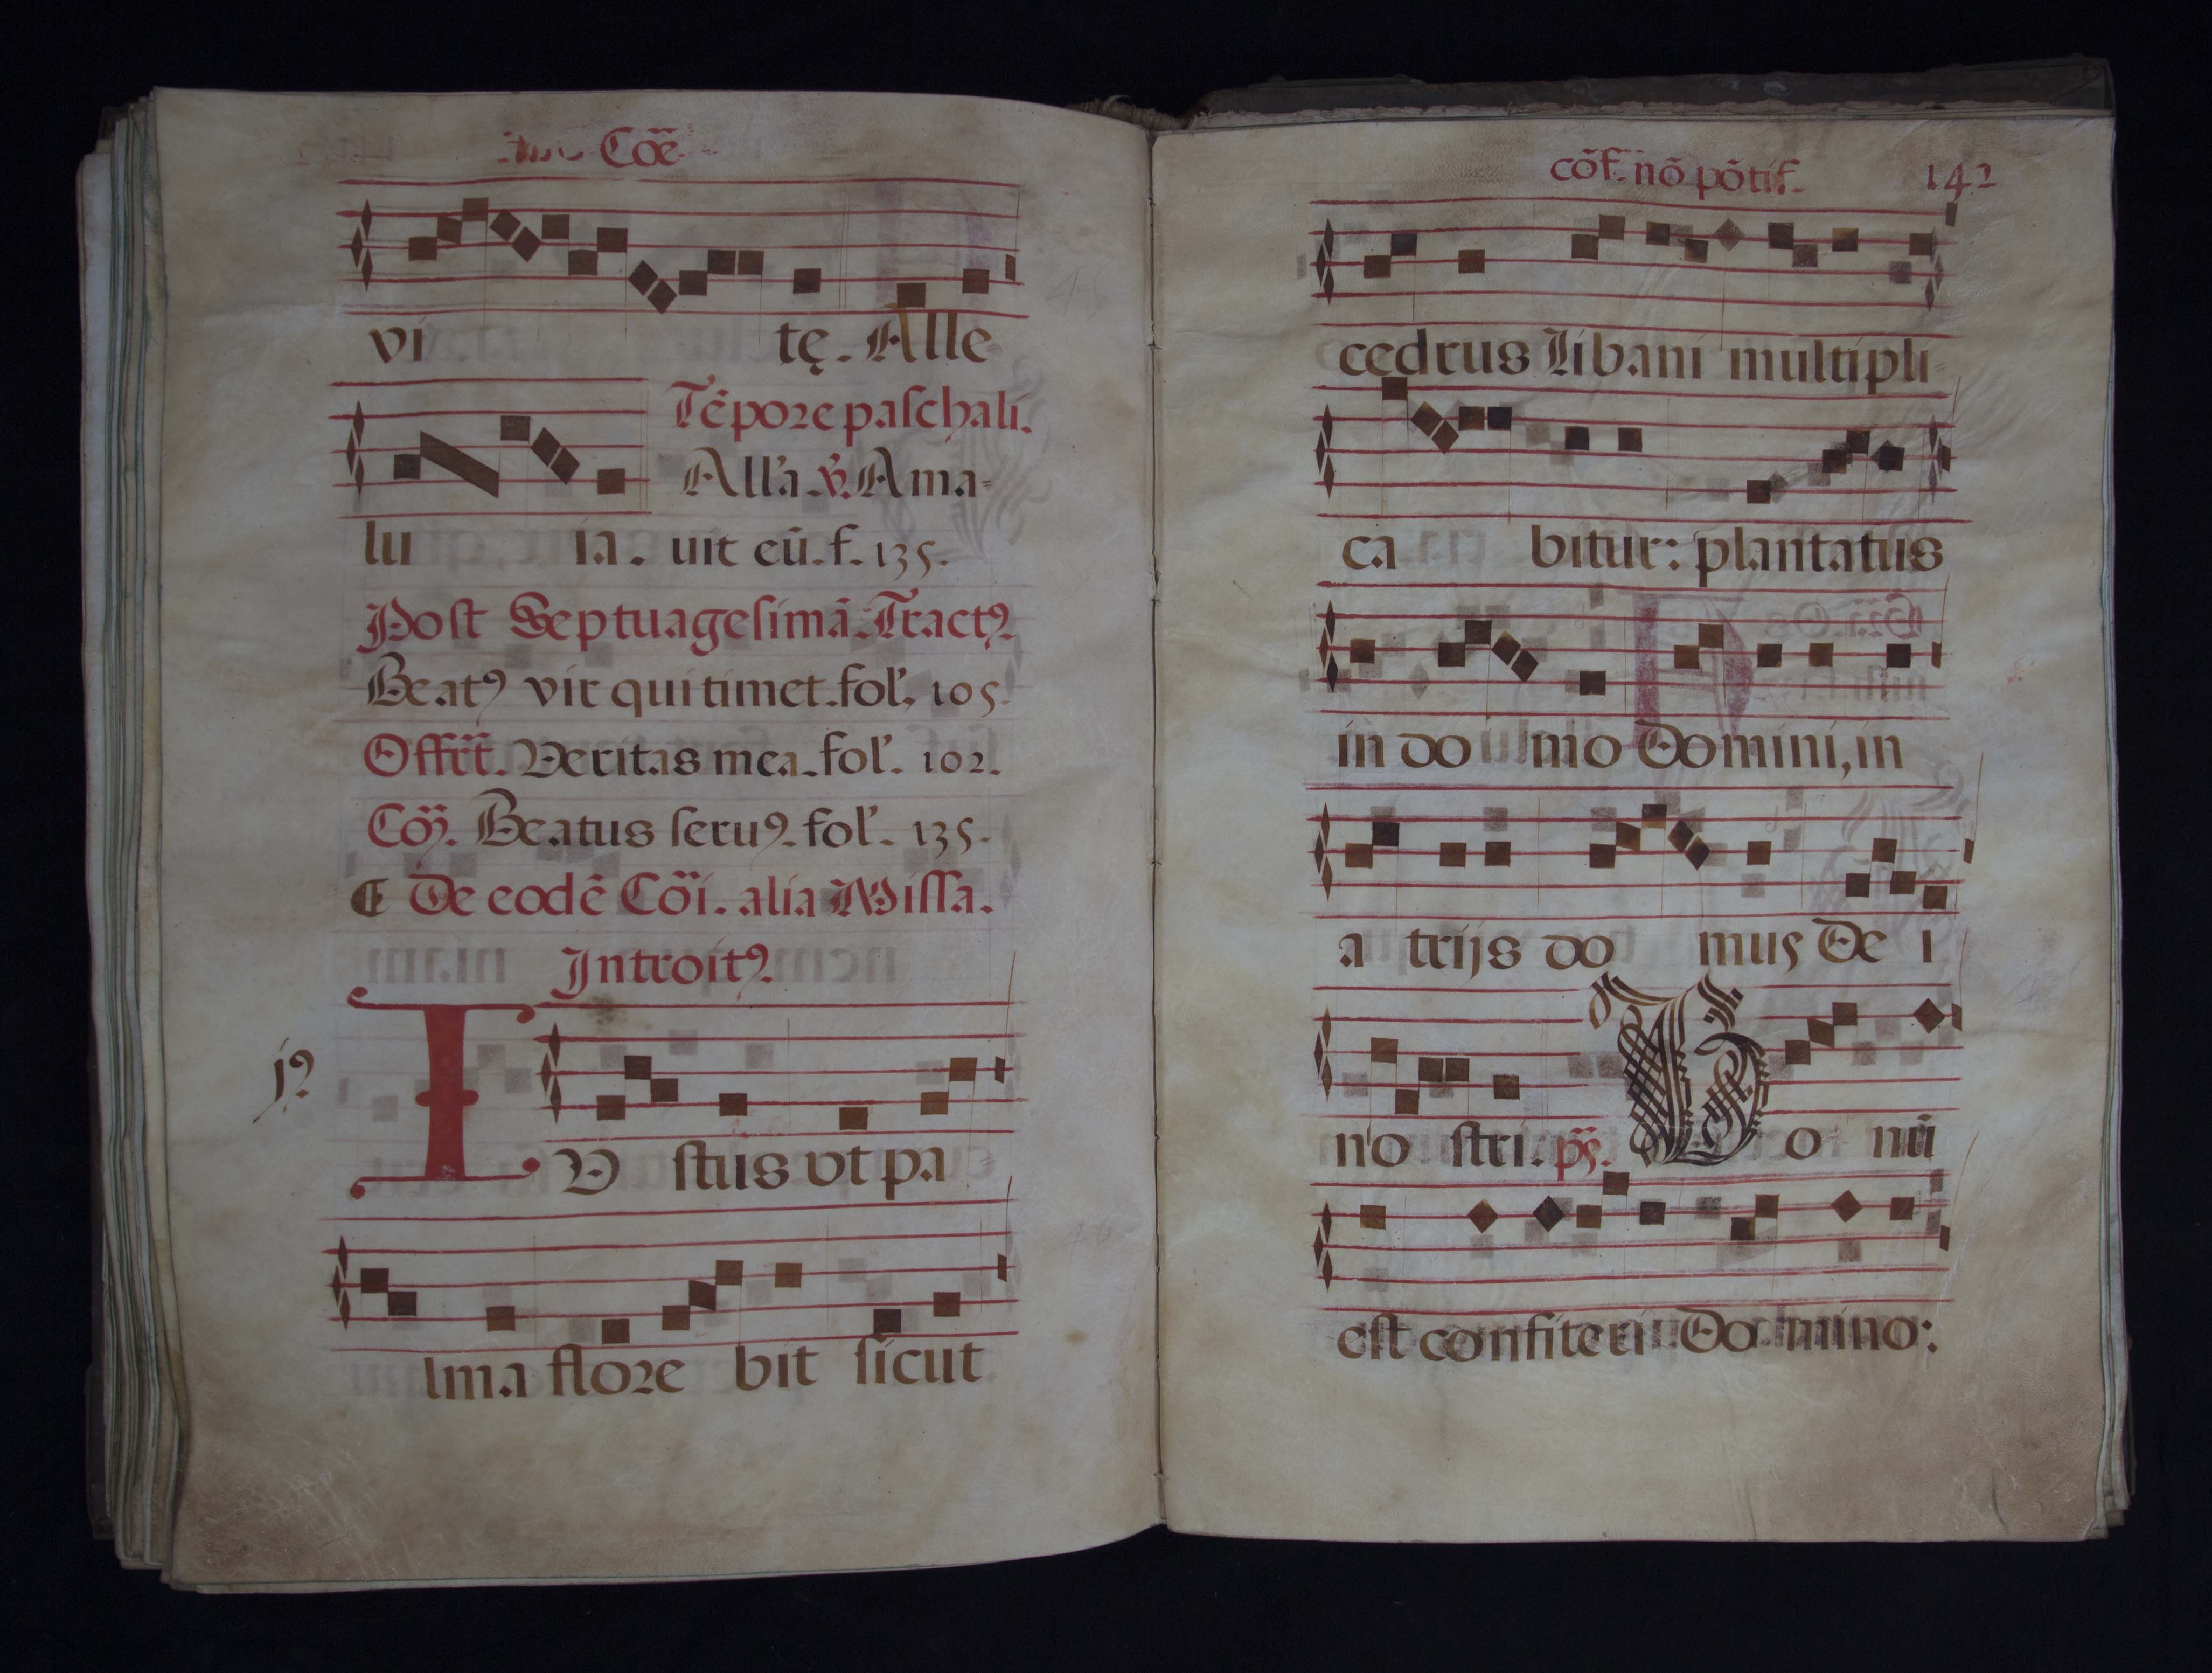 Cōe
vi tę. Alle
Tēpore paſchali.
All'a. v̄. Ama-
lu ia. uit eū. f. 135.
Poſt Septuageſimā. Tractꝰ.
Beatꝰ vir qui timet. fol', 105.
Offrt̄. Veritas mea. fol'. 102.
Cōj. Beatus ſeruꝰ. fol'. 135.
De eodē Cōi. alia Miſſa.
Introitꝰ.
IV ſtus vt pa
lma flore bit ſicut
cōf. nō pōtif. 142
cedrus Libani multipli-
ca bitur: plantatus
in do mo Domini, in
a trijs do mus De i
no ſtri. ps̄. Bo nū
eſt confiteri Do mino: